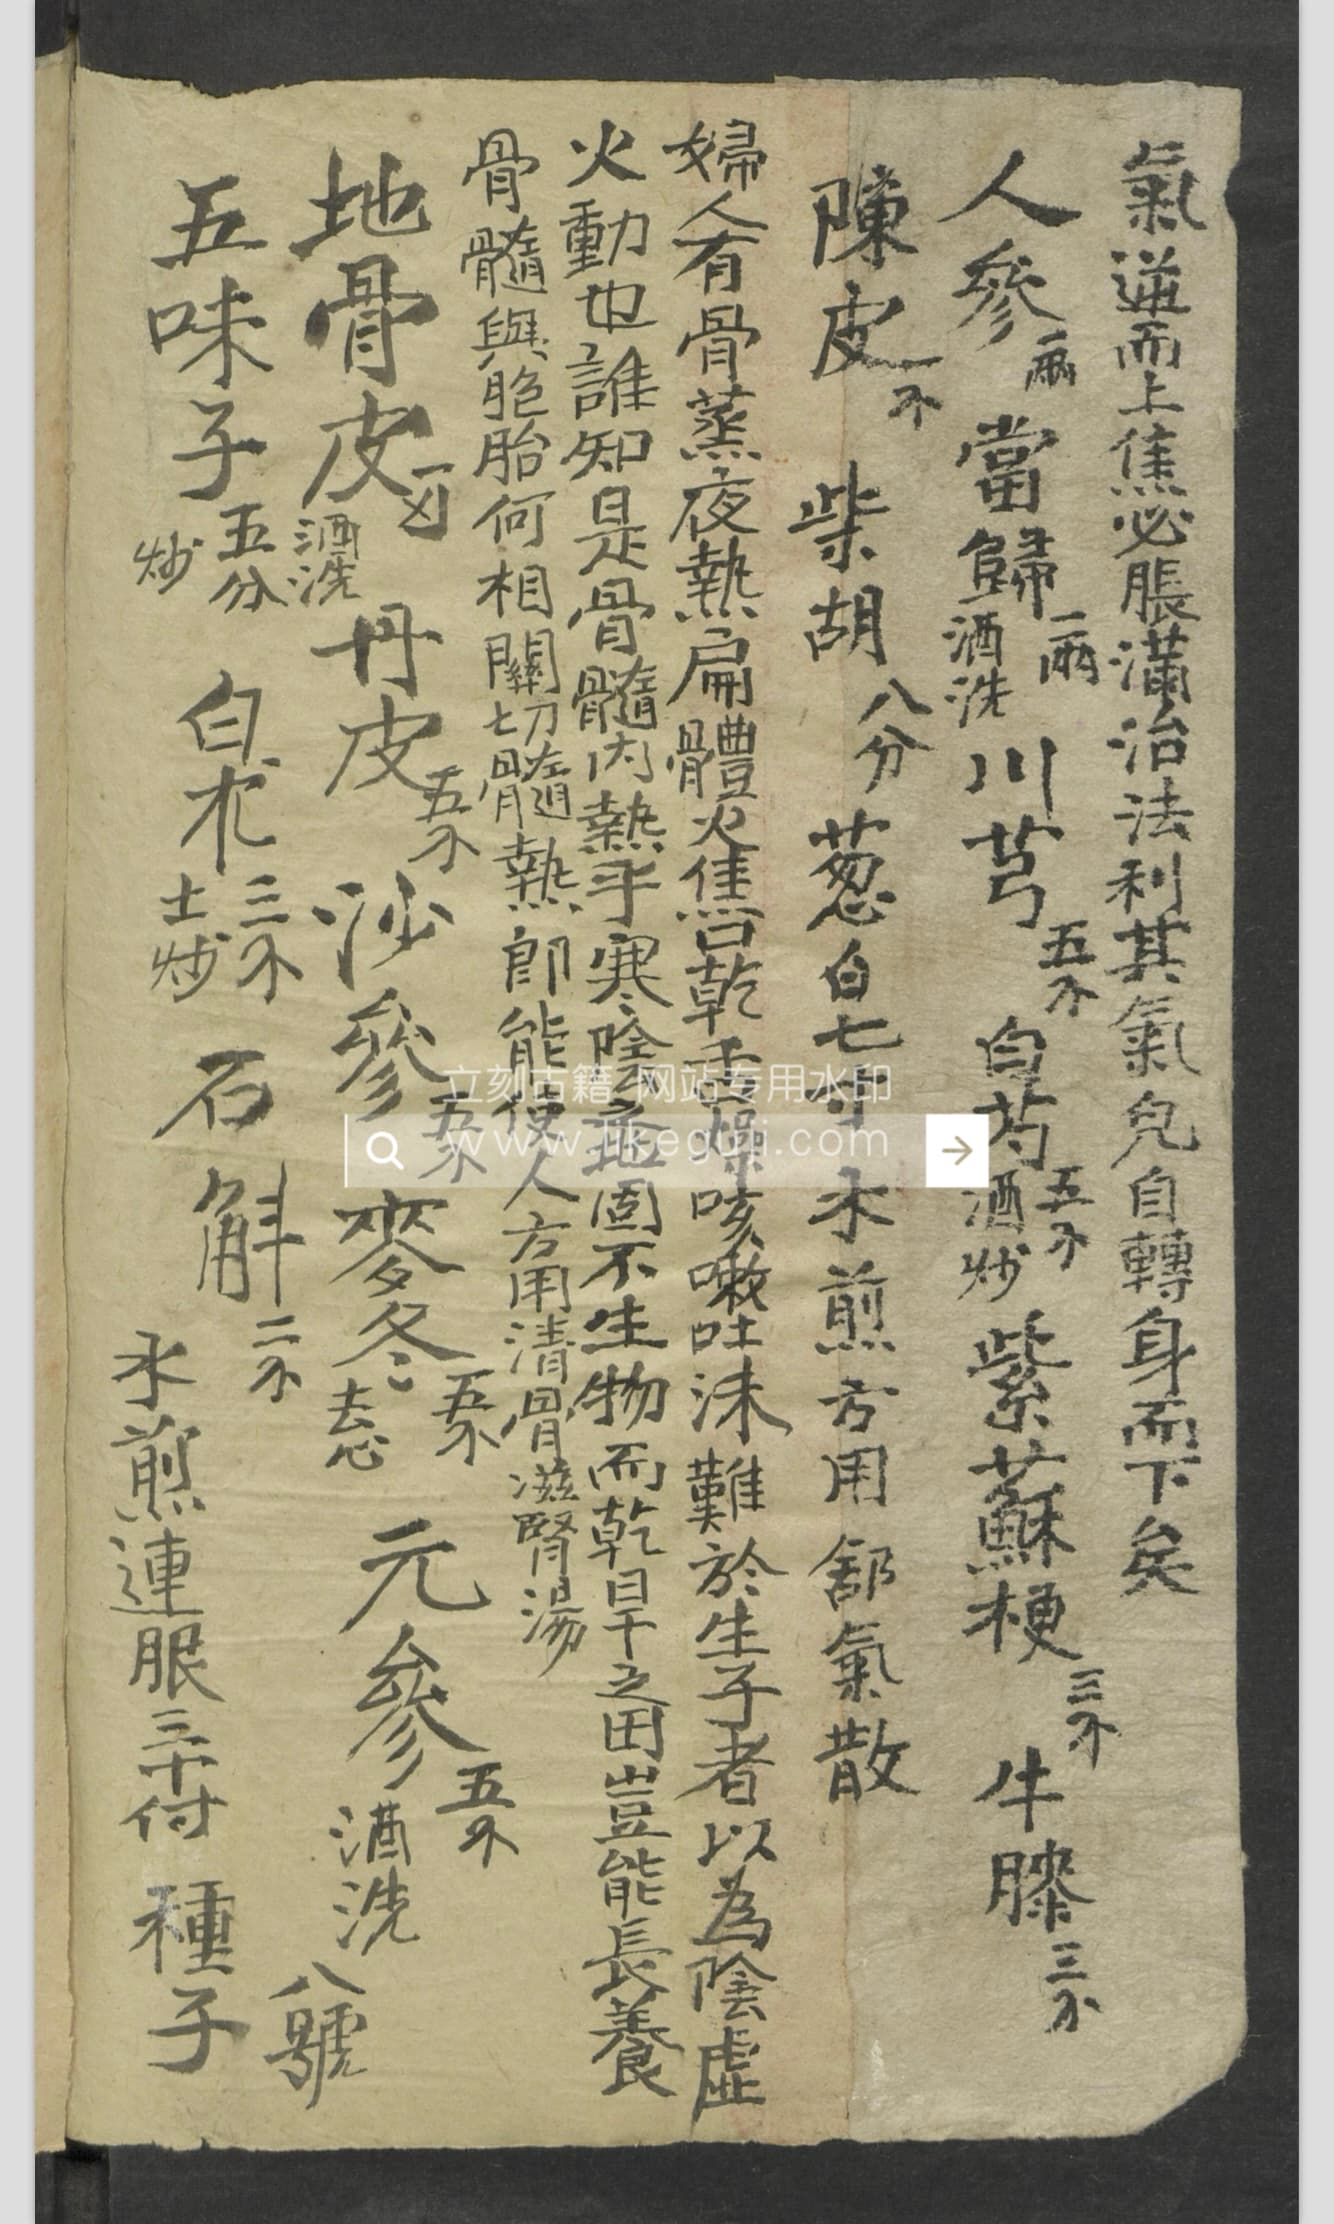 氣逆而上焦必脹滿治法利其氣兒自轉身而下矣
人參一兩 當歸一兩酒洗 川芎五分 白芍五分酒炒 紫蘇梗三分 牛膝三分
陳皮一分 柴胡八分 葱白七寸 水煎方用舒氣散
婦人有骨蒸夜熱扁體火焦口乾舌燥咳嗽吐沫難於生子者以為陰虛
火動也誰知是骨髓内熱乎寒陰之地固不生物而乾旱之田豈能長養
骨髓與胞胎何相關切骨髓熱即能使人方用清骨滋腎湯
地骨皮一兩酒洗 丹皮五分 沙參五分 麥冬五分去心 元參五分酒洗
五味子五分炒 白朮三分土炒 石斛二分 水煎連服三十付 種子
八號
立刻古籍 网站专用水印
www.likeguji.com